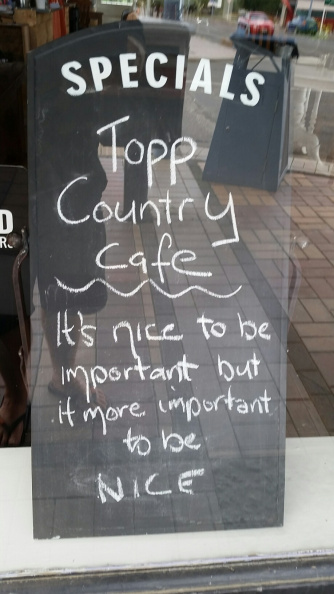 SPECIALS
Topp
Country
Cafe
It's nice to be
important but
it more important
to be
NICE
D
R.